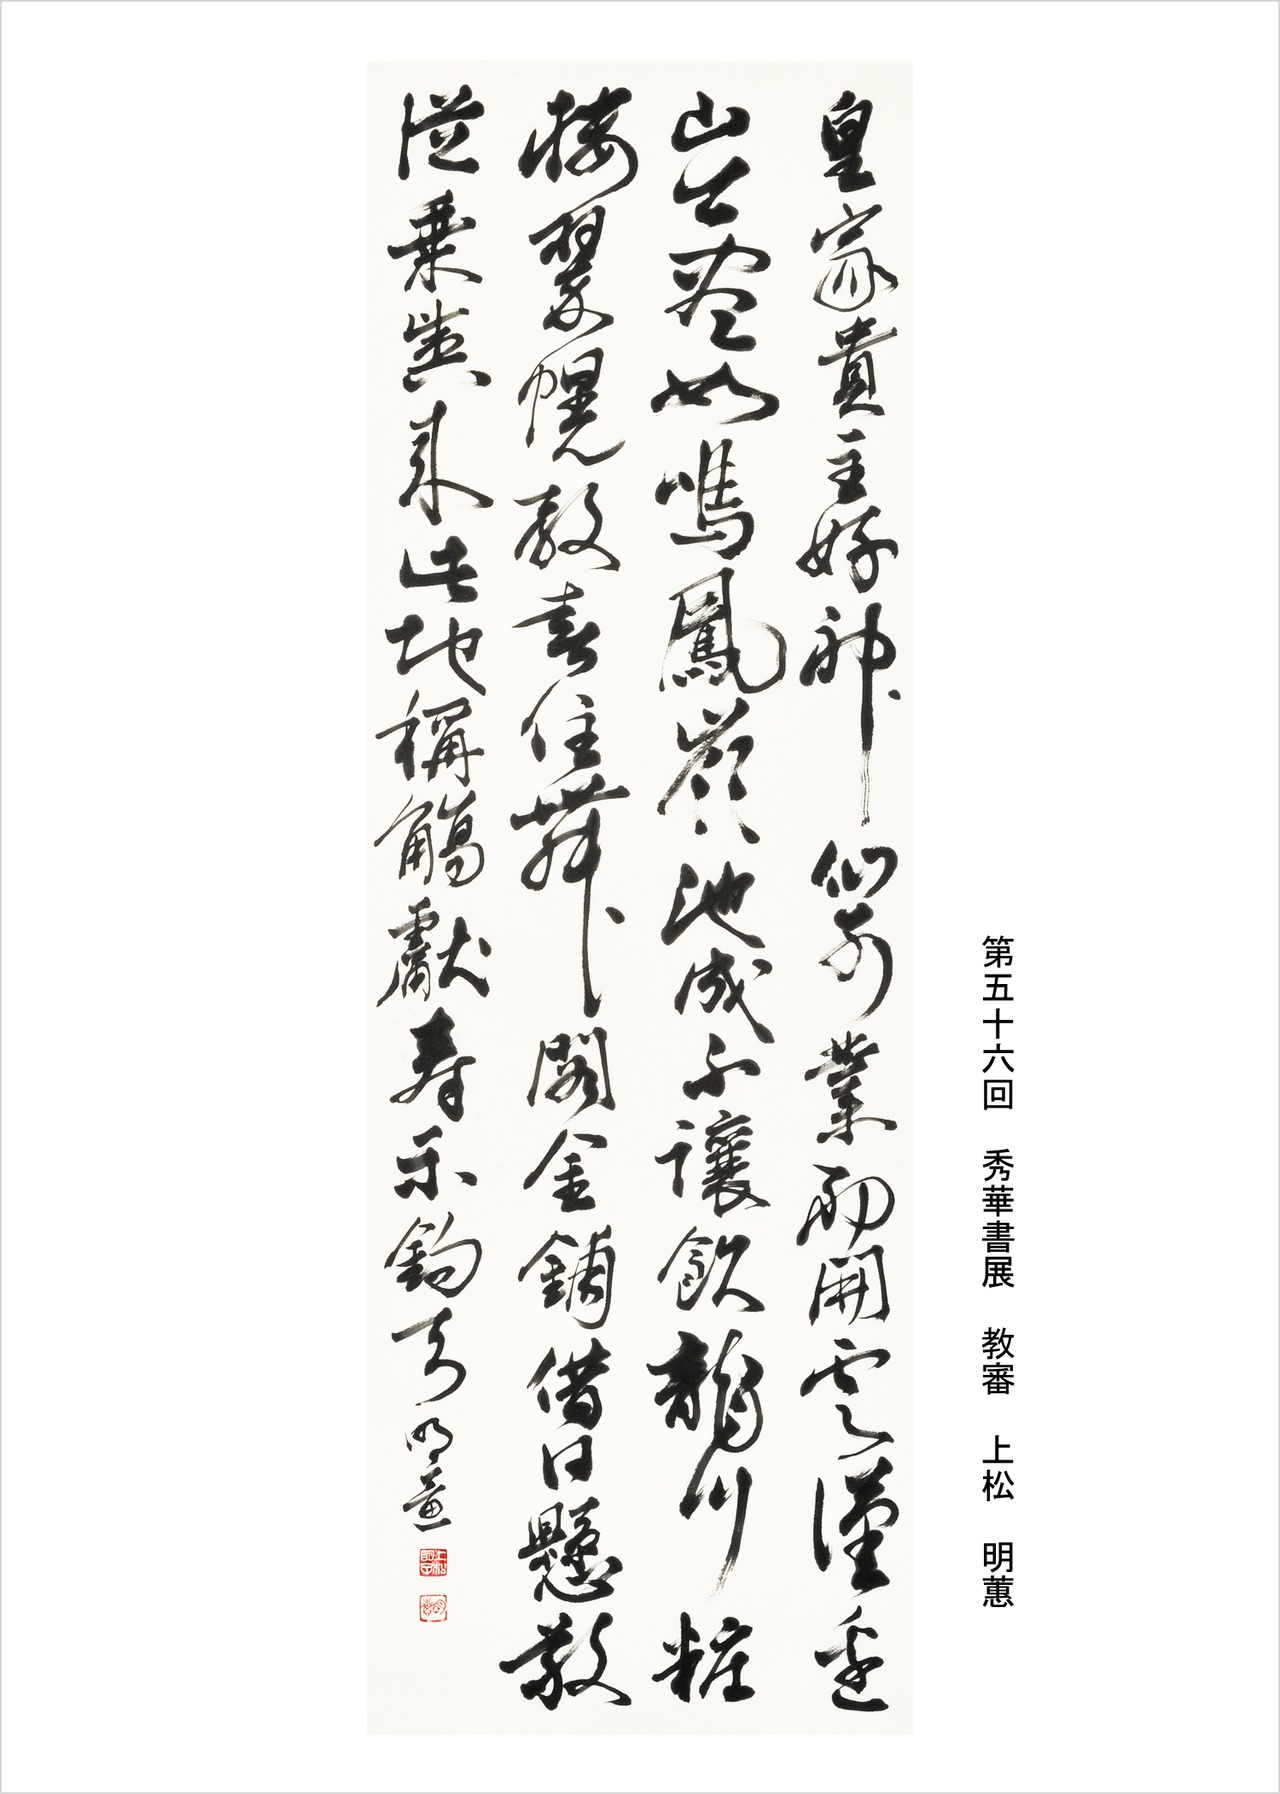 第五十六回　秀華書展　教審　上松　明蕙
皇家貴主好神仙別業初開雲漢邊
山出盡如鳴鳳嶺池成不讓飲龍川粧
楼翠幌教春住舞閣金鋪借日懸敬
從乗輿来此地稱觴獻寿楽鈞天 明蕙